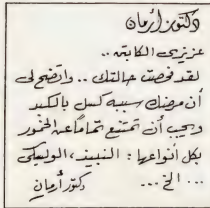 دكتور أرمان
عزيزى الكاتبه ..
لقد فحصت حالتك .. واتضح لى
أن مرضك سببه كسل بالكبد
ويجب أن تمتنع تمامًا عن الخمور
بكل أنواعها : النبيذ ، الويسكى
... الخ ...
دكتور أرمان